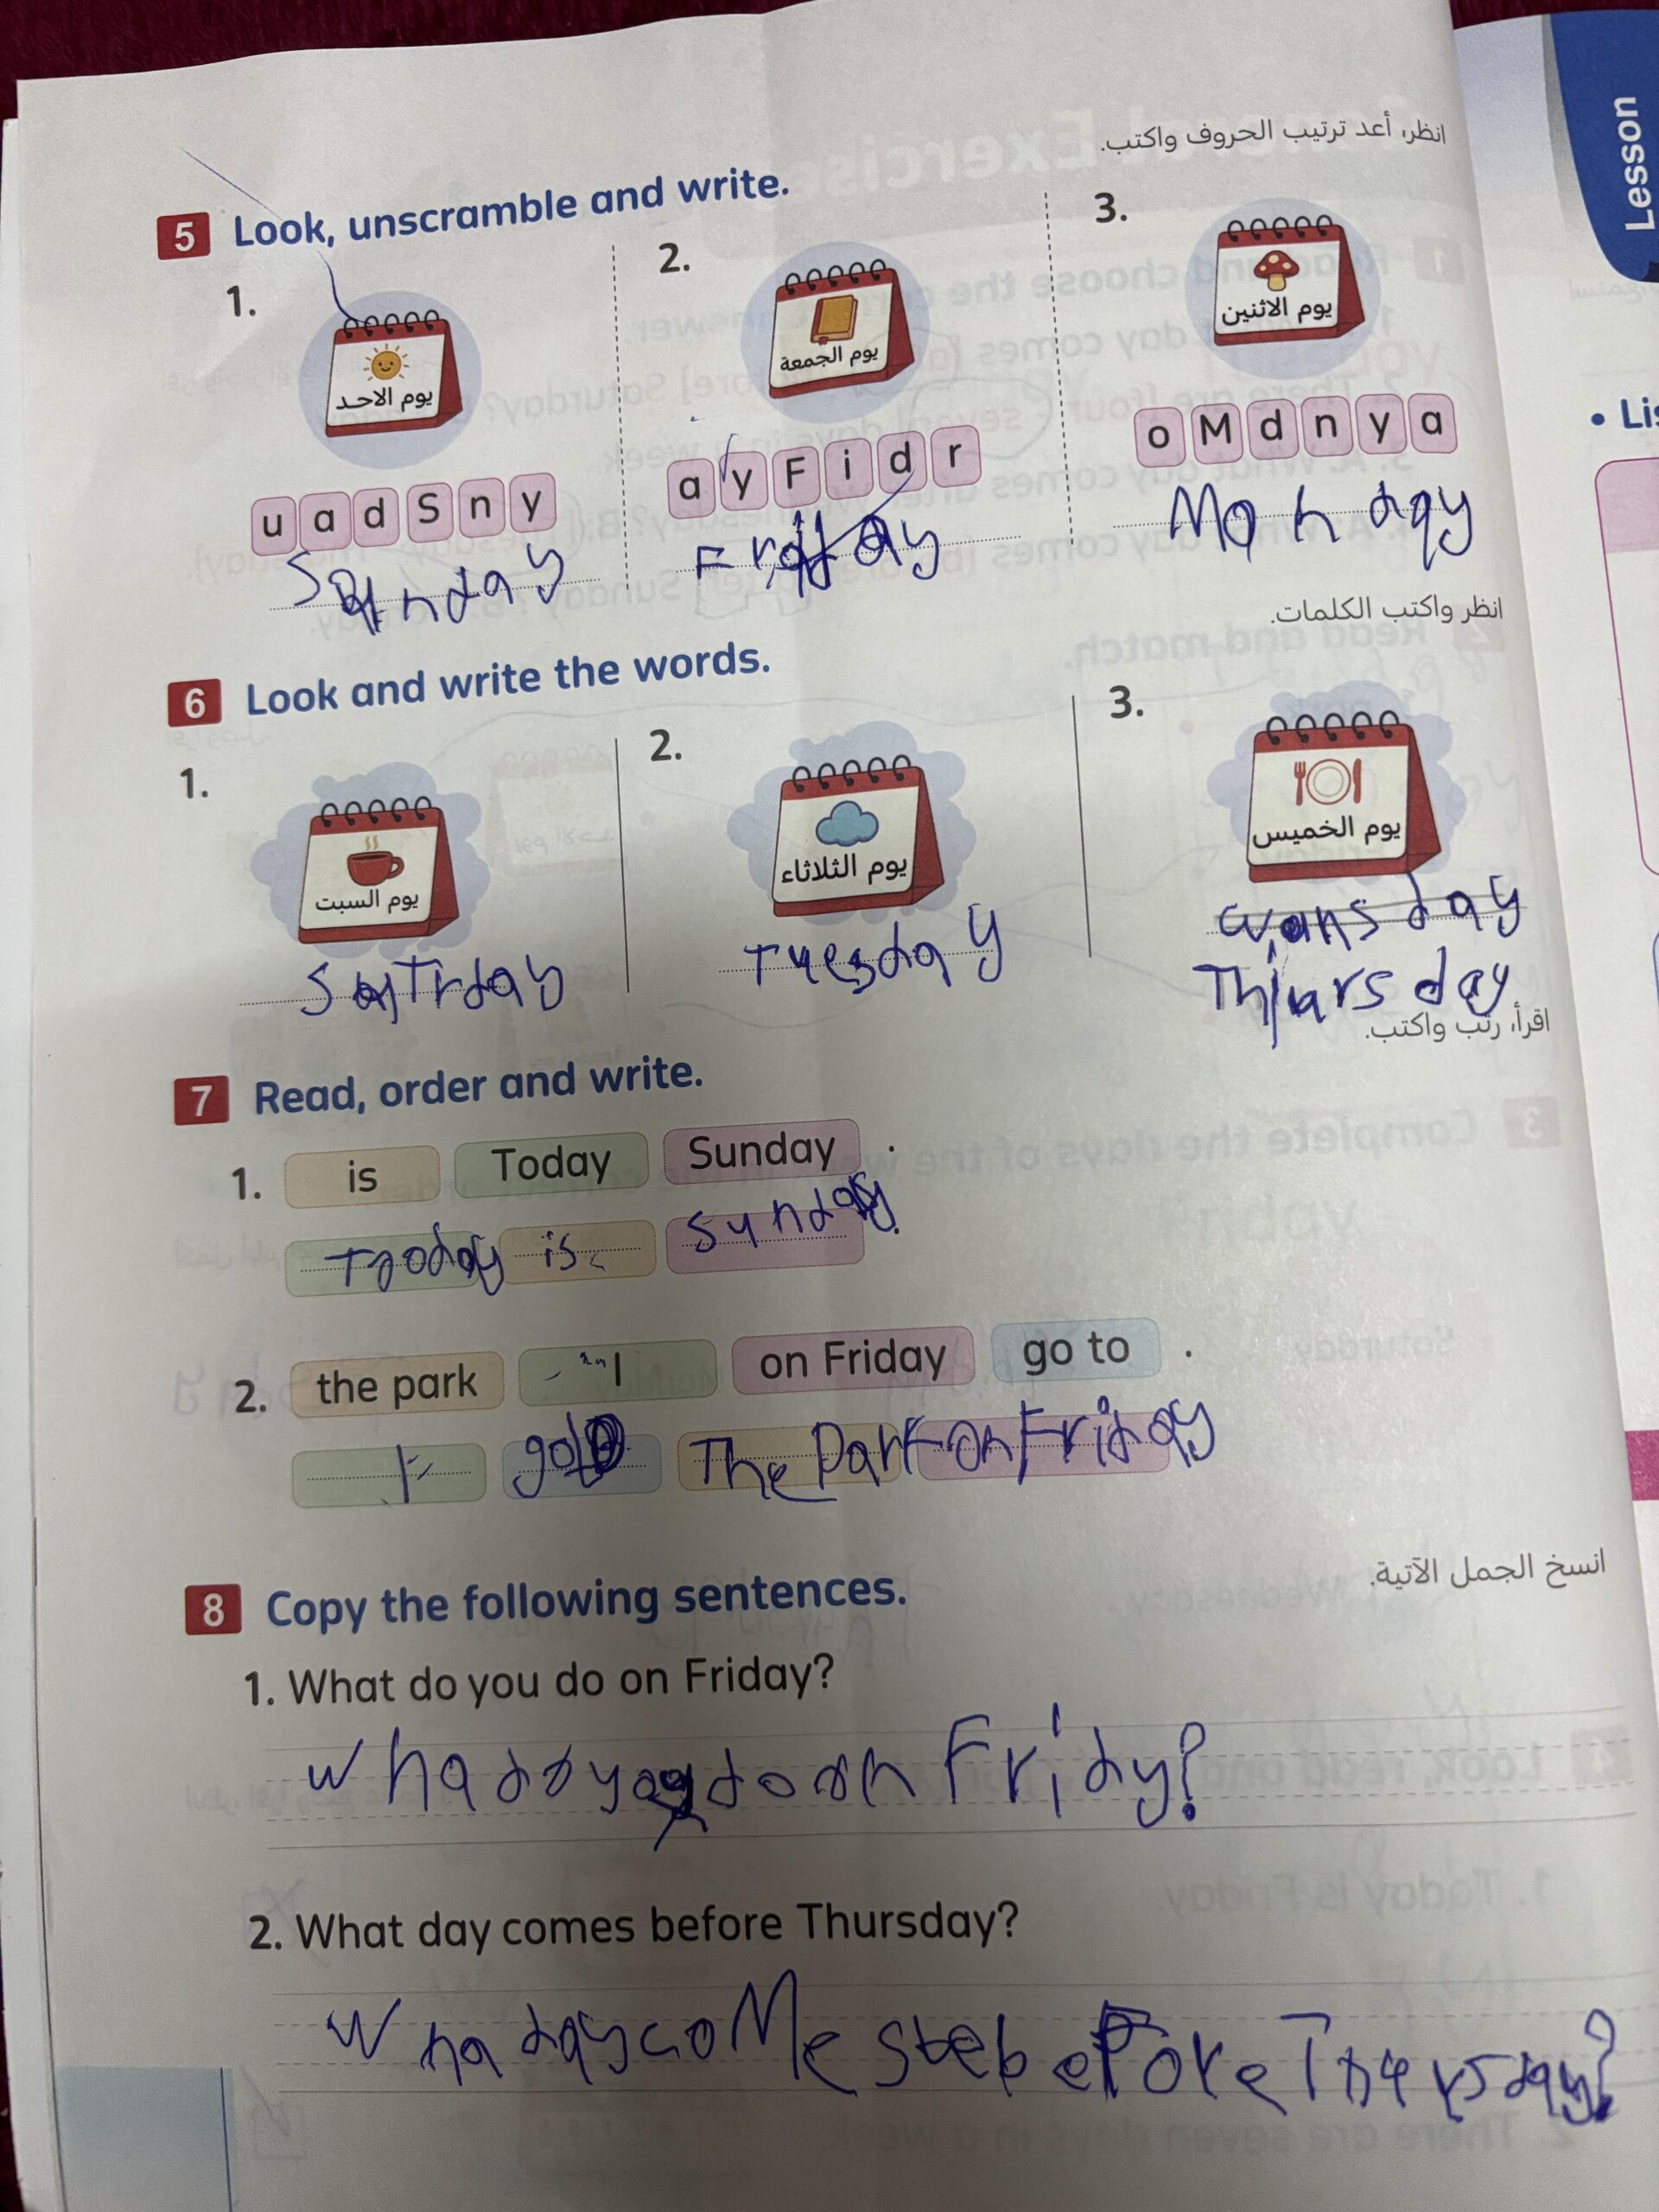 Lesson
انظر، أعد ترتيب الحروف واكتب.
5 Look, unscramble and write.
1.
2.
3.
يوم الاحد
يوم الجمعة
يوم الاثنين
u a d S n y
a y F i d r
o M d n y a
Monday
انظر واكتب الكلمات.
6 Look and write the words.
1.
2.
3.
يوم السبت
يوم الثلاثاء
يوم الخميس
Tuesday
اقرأ، رتب واكتب.
7 Read, order and write.
1. is Today Sunday .
is Sunday.
2. the park I on Friday go to .
I go The Park on Friday
انسخ الجمل الآتية.
8 Copy the following sentences.
1. What do you do on Friday?
Wha do do on Fridy?
2. What day comes before Thursday?
Wha day
• Lis